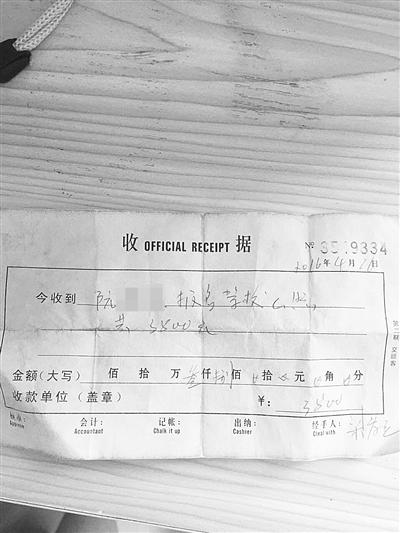 收 OFFICIAL RECEIPT 据
№ 3519334
2016年4月11日
今收到 阮 报名学校
共 3500元
第二联 交顾客
金额(大写) 佰 拾 万 叁仟 佰 拾 元 角 分
收款单位(盖章) ¥: 3500
核准: 会计: 记帐: 出纳: 经手人:
Approve Accountant Chalk it up Cashier Cleal with